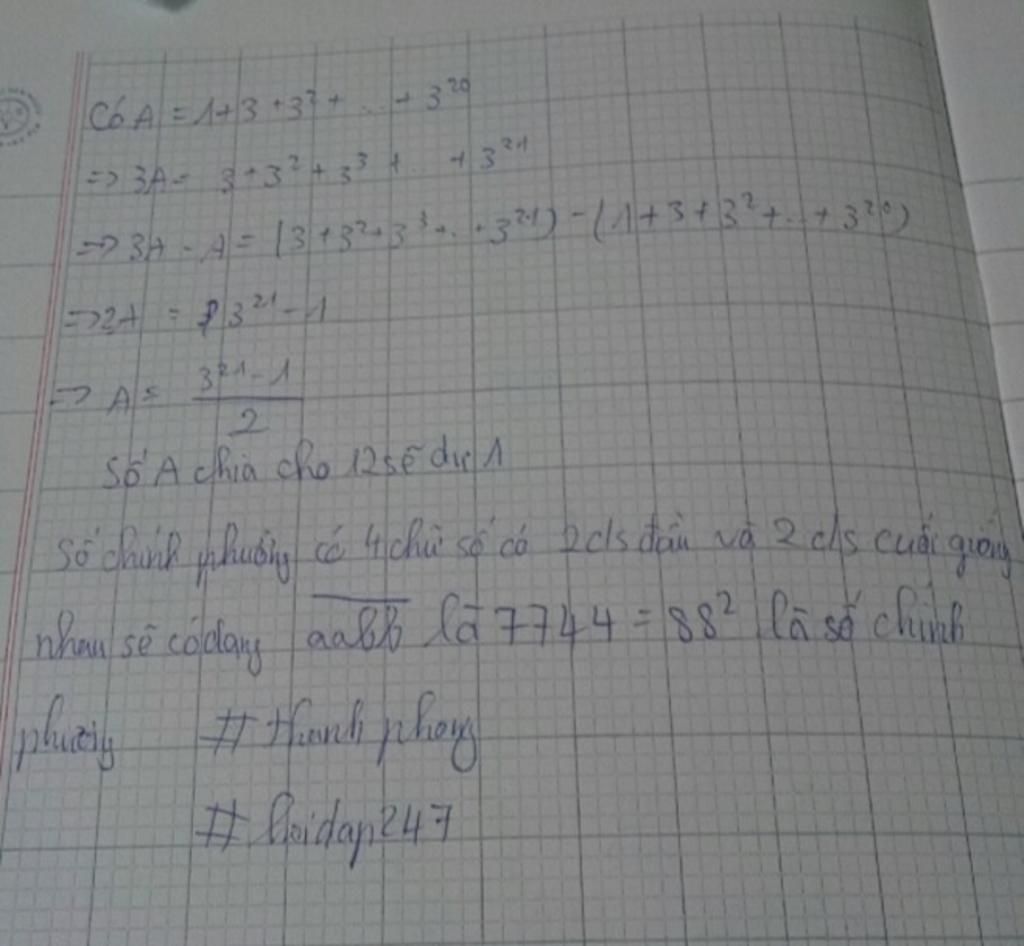 Có A = 1+3+3² + ... + 3²⁰
=> 3A = 3+3²+3³ + .. + 3²¹
=> 3A - A = (3+3²+3³+..+3²¹) - (1+3+3²+..+3²⁰)
=> 2A = 3²¹ - 1
=> A = \frac{3²¹ - 1}{2}
Số A chia cho 12 sẽ dư 1
Số chính phương có 4 chữ số có 2 c/s đầu và 2 c/s cuối giống
nhau sẽ có dạng \overline{aabb} là 7744 = 88² là số chính
phương # thanh phong
# hoidap247